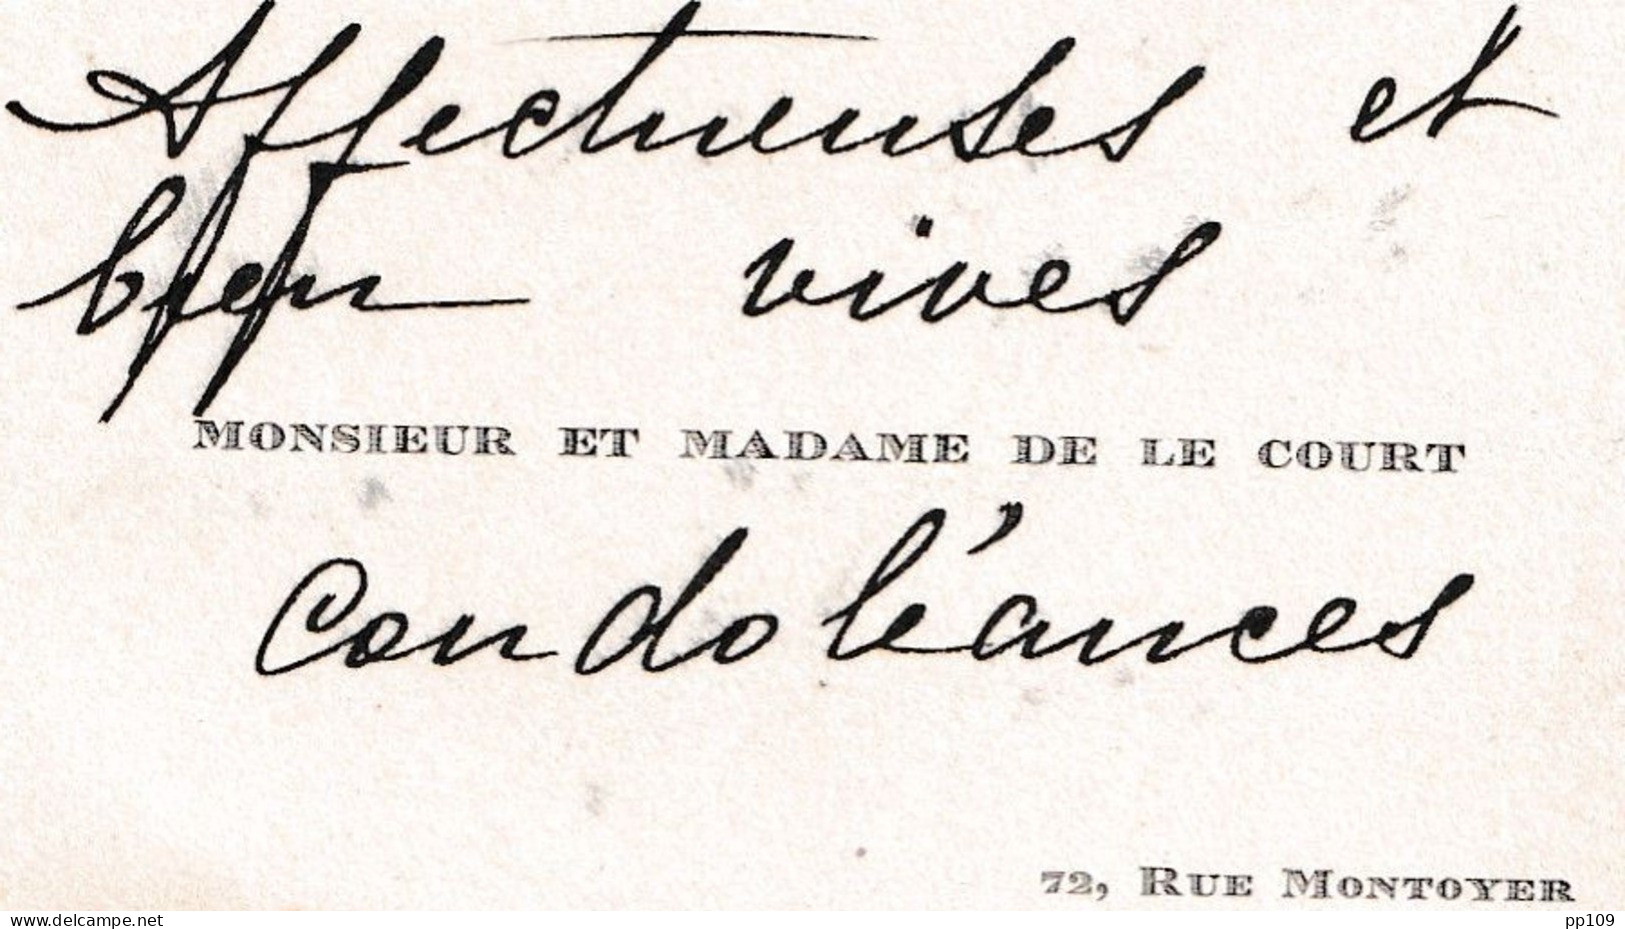 Affectueuses et
bien vives
MONSIEUR ET MADAME DE LE COURT
condoléances
72, RUE MONTOYER
www.delcampe.net
pp109